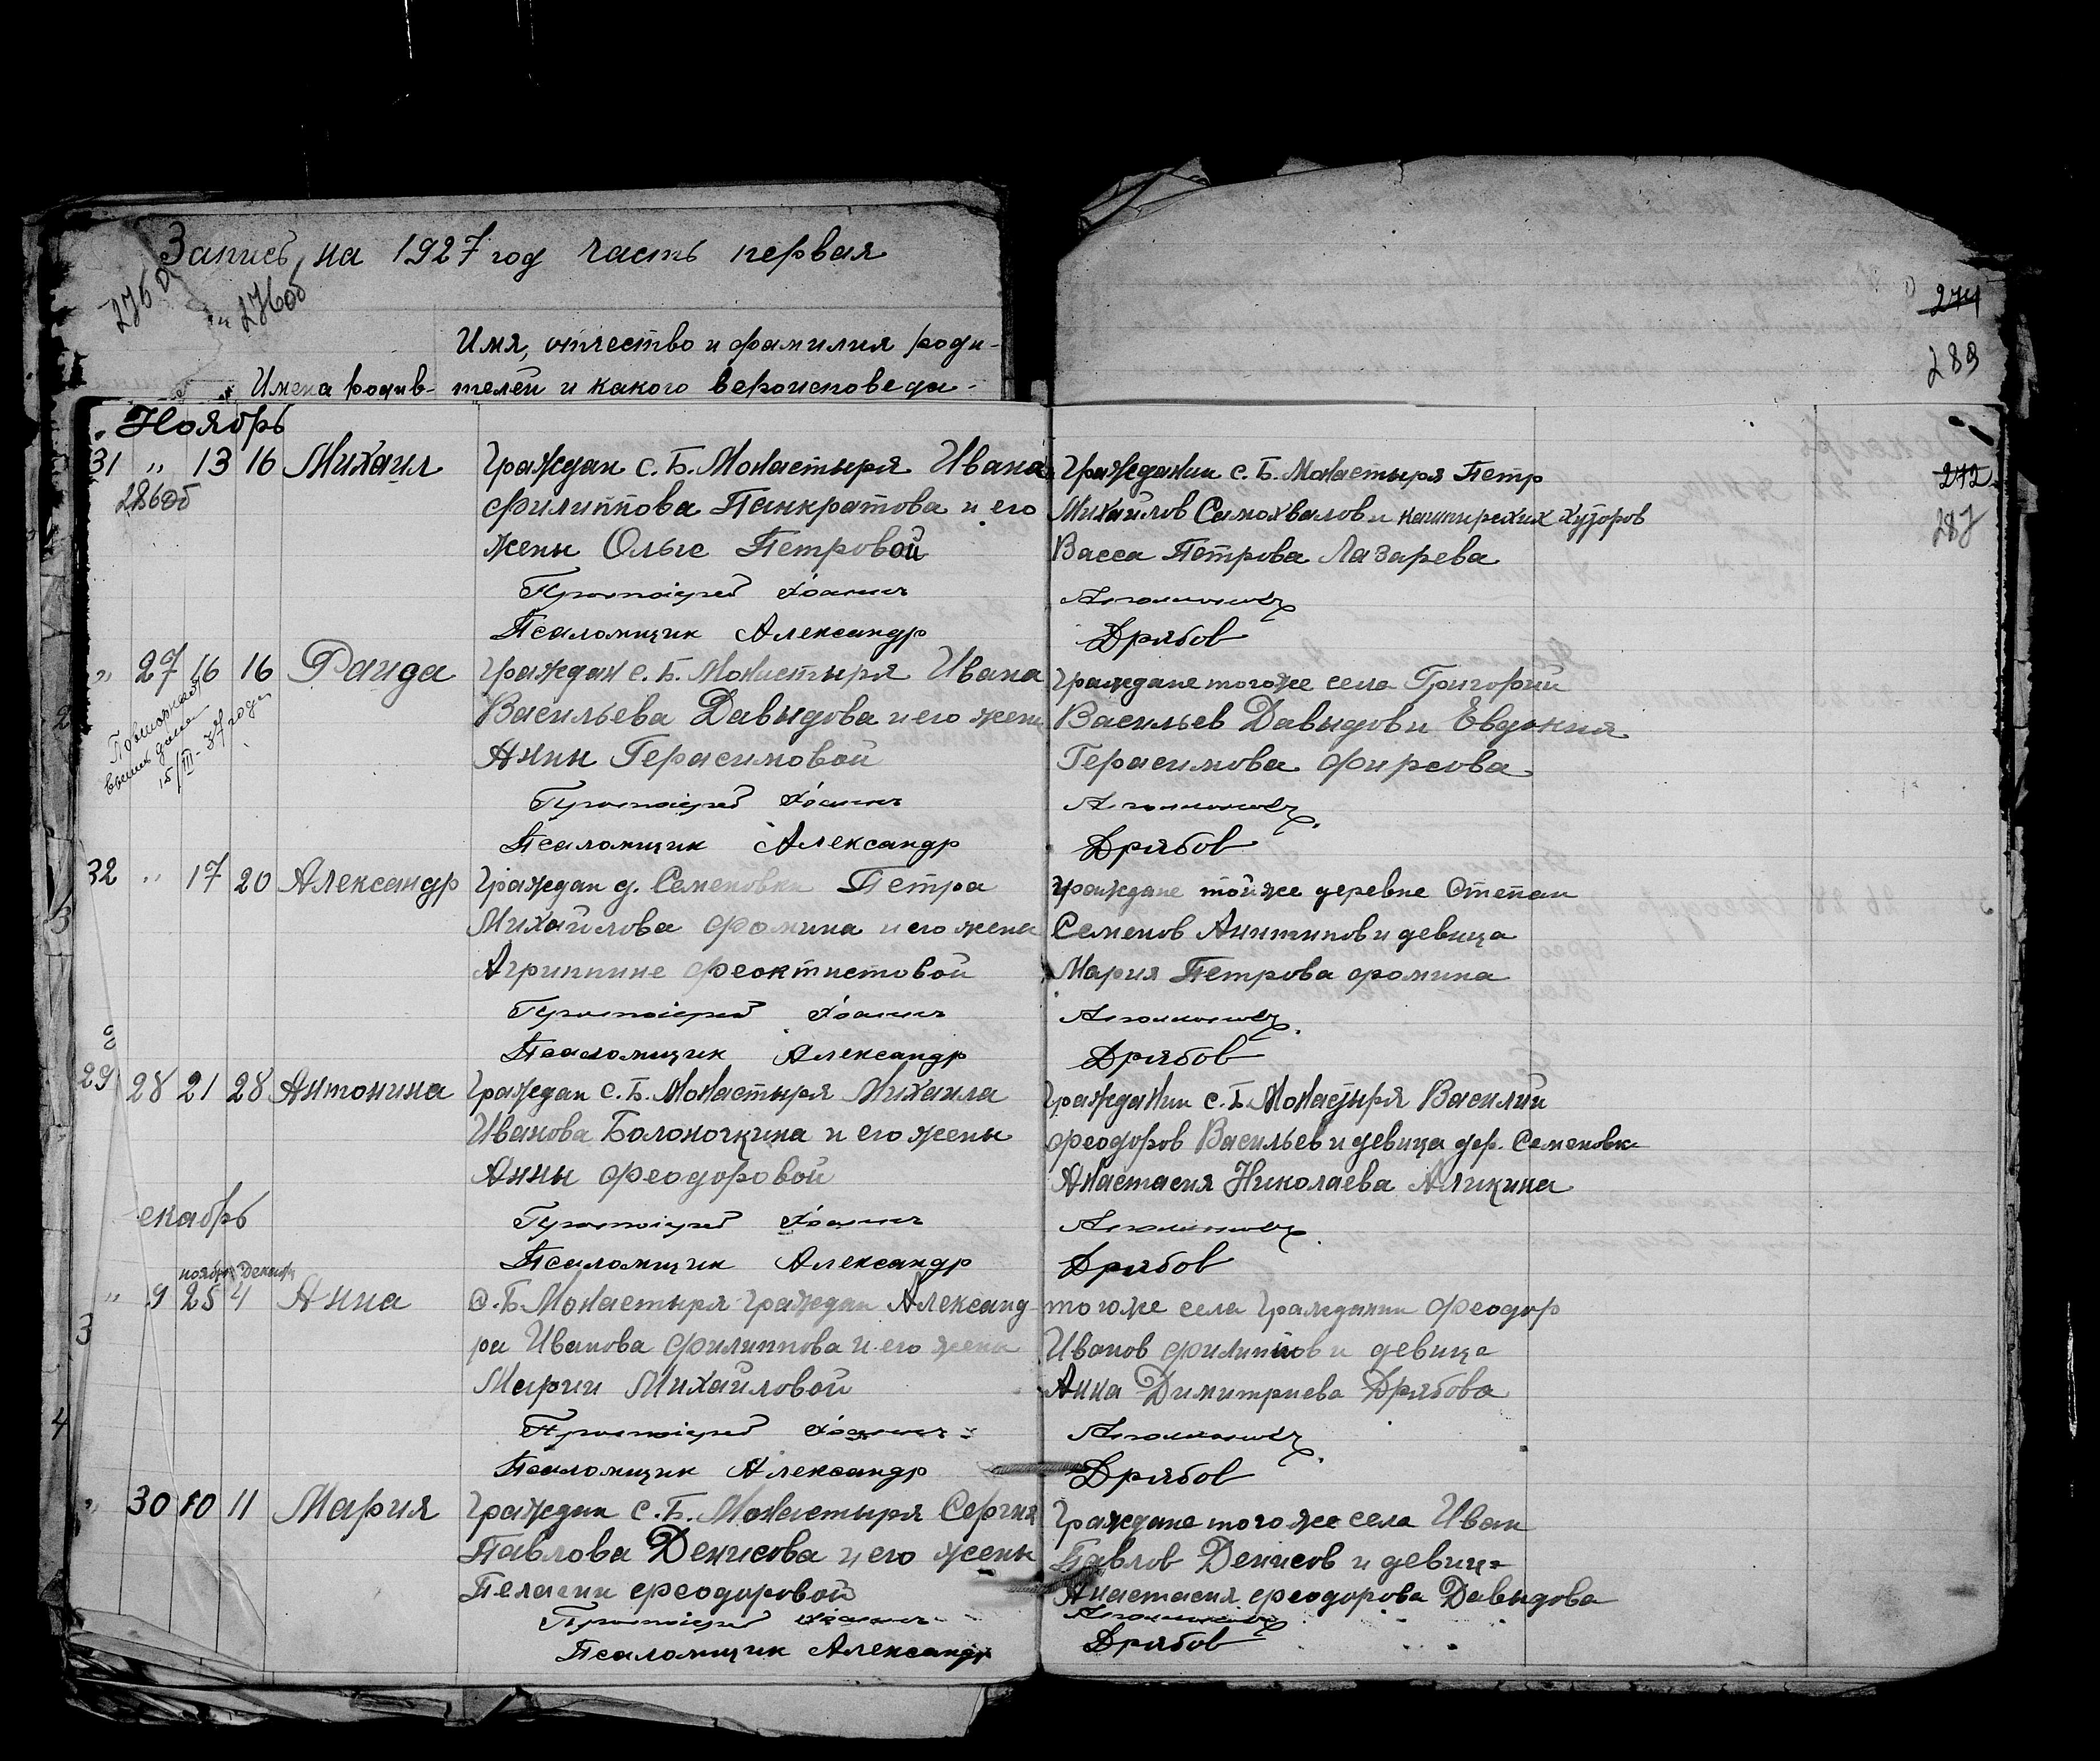 Запись на 1927 год часть первая
276об
274
289
Имя, отчество и фамилия роди-
Имена родив- телей и какого вероисповеда-
Ноябрь
31 „ 13 16 Михаил Граждан с. Б. Монастыря Ивана Гражданин с. Б. Монастыря Петр
272
286об Филиппова Панкратова и его Михайлов Самохвалов и каширских хуторов
287
жены Ольге Петровой Васса Петрова Лазарева
Протоіерей Іоанн
Псаломщик Александр Дрябов
„ 27 16 16 Раида Граждан с. Б. Монастыря Ивана Граждане того же села Григорий
2 Васильева Давыдова и его жены Васильев Давыдов и Евдокия
15/III-37 года
Анны Герасимовой Герасимова Фирсова
Протоіерей Іоанн
Псаломщик Александр Дрябов
32 „ 17 20 Александр Граждан д. Семеновки Петра Граждане той же деревне Степан
3 Михайлова Фомина и его жена Семенов Антипов и девица
Агриппине Феоктистовой Мария Петрова Фомина
Протоіерей Іоанн
Псаломщик Александр Дрябов
29 28 21 28 Антонина Граждан с. Б. Монастыря Михаила Гражданин с. Б. Монастыря Василий
Иванова Болоночкина и его жены Феодоров Васильев и девица дер. Семеновки
Анны Феодоровой Анастасия Николаева Аликина
екабрь
Протоіерей Іоанн
Псаломщик Александр Дрябов
ноябрь Декабрь
„ 9 25 4 Анна С. Б. Монастыря граждан Александ- того же села Гражданин Феодор
3 ра Иванова Филиппова и его жена Иванов Филиппов и девица
Марии Михайловой Анна Димитриева Дрябова
4
Протоіерей Іоанн
Псаломщик Александр Дрябов
„ 30 10 11 Мария Граждан с. Б. Монастыря Сергия Граждане того же села Иван
Павлова Денисова и его жены Павлов Денисов и девиц-
Пелагии Феодоровой Анастасия Феодорова Давыдова
Протоіерей Іоанн
Псаломщик Александр Дрябов